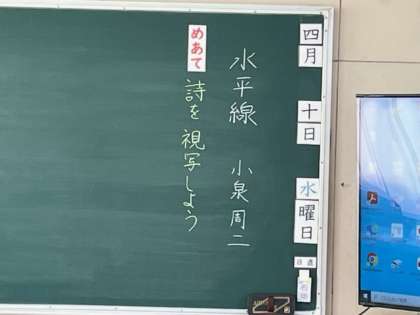 四月
十日
水曜日
日直
水平線 小泉周二
めあて
詩を視写しよう